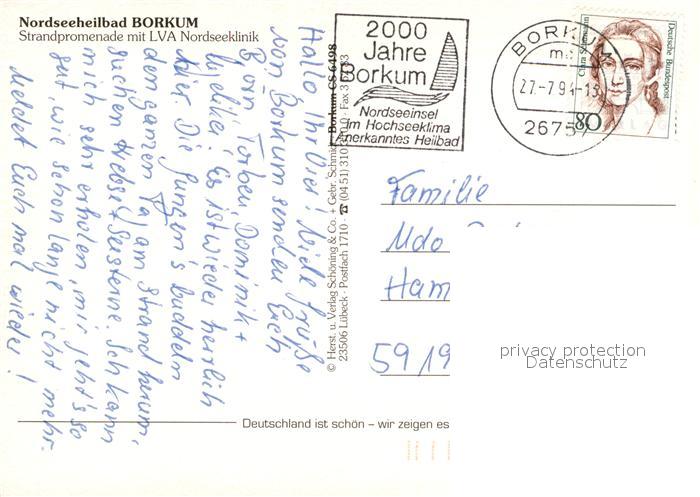 Nordseeheilbad BORKUM
Strandpromenade mit LVA Nordseeklinik
2000
Jahre
Borkum
Nordseeinsel
im Hochseeklima
Anerkanntes Heilbad
BORKUM
27.-7.94-13
2675
Clara Schumann
Deutsche Bundespost
80
Hallo Ihr Vier! Viele Grüße
von Borkum senden Euch
Björn Torben Dominik +
Es ist wieder herrlich
hier. Die Jungen's buddeln
den ganzen Tag am Strand herum,
suchen Krebse + Seesterne. Ich kann
mich sehr erholen, mir geht's so
gut wie schon lange nicht mehr.
Meldet Euch mal wieder!
© Herst. u. Verlag Schöning & Co. + Gebr. Schmidt
Borkum CS 6498
23506 Lübeck · Postfach 1710 · ☎ (04 51) 310 · Fax 3
Familie
Udo
Ham
5919
privacy protection
Datenschutz
Deutschland ist schön – wir zeigen es